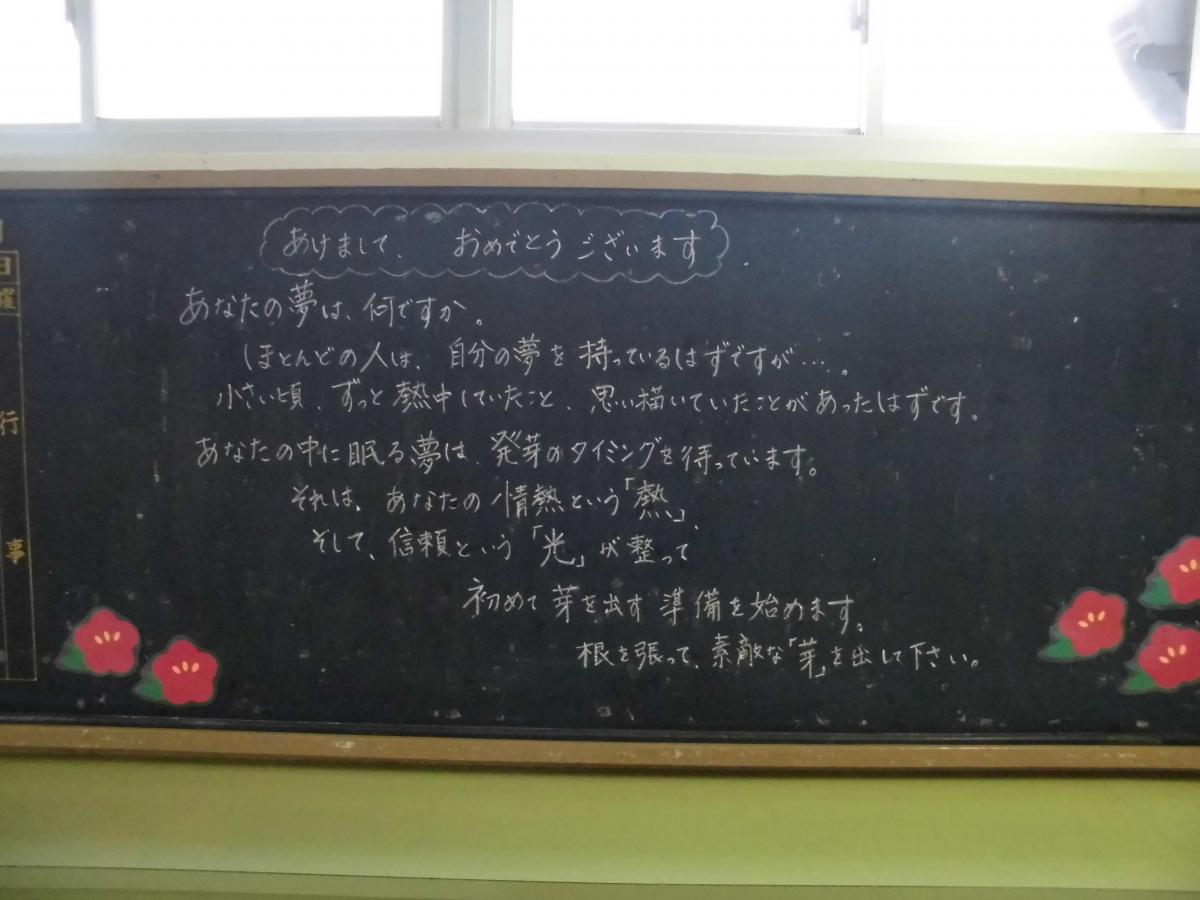 あけまして、おめでとうございます
あなたの夢は、何ですか。
ほとんどの人は、自分の夢を持っているはずですが…。
小さい頃、ずっと熱中していたこと、思い描いていたことがあったはずです。
あなたの中に眠る夢は、発芽のタイミングを待っています。
それは、あなたの情熱という「熱」、
そして、信頼という「光」が整って
初めて芽を出す準備を始めます。
根を張って、素敵な「芽」を出して下さい。
日
曜
行
事